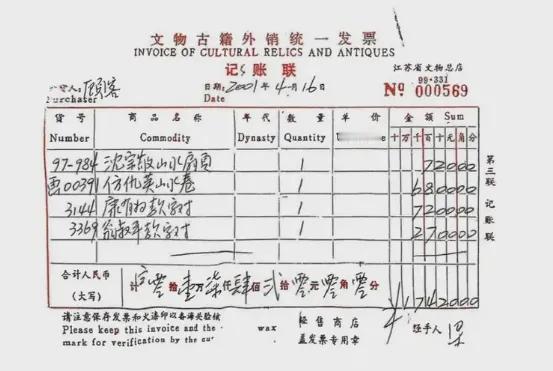 文物古籍外销统一发票
INVOICE OF CULTURAL RELICS AND ANTIQUES
记账联
江苏省文物总店
99·331
货人: 顾客
日期: 2001年4月16
№ 000569
Purchaser
Date
货号 商品名称 年代 数量 单价 金额 Sum
Number Commodity Dynasty Quantity 十万千百十元角分
97-984 沈宗敬山水扇页 1 72000
西00391 仿仇英山水卷 1 680000
3144 康有为款字对 1 720000
3369 翁叔平款字对 1 270000
第三联 记账联
合计人民币
(大写)
计 零拾壹万柒仟肆佰弍拾零元零角零分
¥1742000
请注意保存发票和火漆印以备海关验核
Please keep this invoice and the wax
mark for verification by the
经售商店
盖发票专用章
经手人 梁